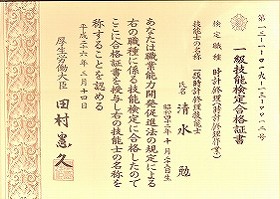 第一三―一―〇一九―一三―〇〇一三号
一級技能検定合格証書
検定職種 時計修理(時計修理作業)
技能士の名称 一級時計修理技能士
氏名 清水 勉
あなたは職業能力開発促進法の規定による
右の職種に係る技能検定に合格したので
ここに合格証書を授与し右の技能士の名称を
称することを認める
平成二六年三月十四日
厚生労働大臣 田村憲久